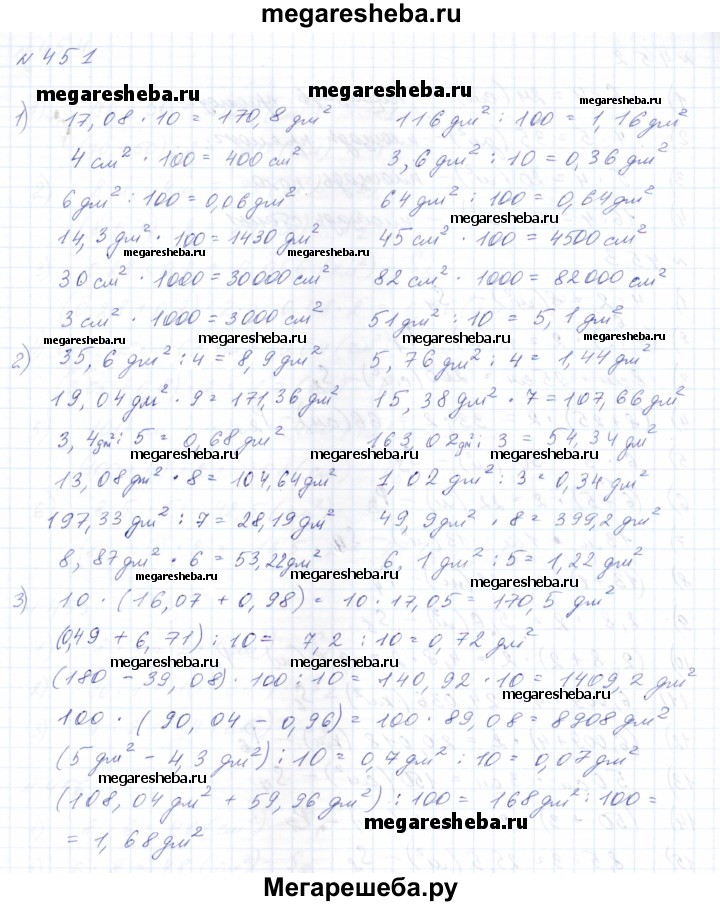 megaresheba.ru
№ 451
megaresheba.ru megaresheba.ru
1) 17,08 · 10 = 170,8 дм² 116 дм² : 100 = 1,16 дм²
4 см² · 100 = 400 см² 3,6 дм² : 10 = 0,36 дм²
6 дм² : 100 = 0,06 дм² 64 дм² : 100 = 0,64 дм²
megaresheba.ru
14,3 дм² · 100 = 1430 дм² 45 см² · 100 = 4500 см²
megaresheba.ru megaresheba.ru
30 см² · 1000 = 30000 см² 82 см² · 1000 = 82000 см²
3 см² · 1000 = 3000 см² 51 дм² : 10 = 5,1 дм²
megaresheba.ru megaresheba.ru megaresheba.ru
2) 35,6 дм² : 4 = 8,9 дм² 5,76 дм² : 4 = 1,44 дм²
19,04 дм² · 9 = 171,36 дм² 15,38 дм² · 7 = 107,66 дм²
3,4 дм² : 5 = 0,68 дм² 163,02 дм² : 3 = 54,34 дм²
megaresheba.ru megaresheba.ru megaresheba.ru
13,08 дм² · 8 = 104,64 дм² 1,02 дм² : 3 = 0,34 дм²
197,33 дм² : 7 = 28,19 дм² 49,9 дм² · 8 = 399,2 дм²
8,87 дм² · 6 = 53,22 дм² 6,1 дм² : 5 = 1,22 дм²
megaresheba.ru megaresheba.ru megaresheba.ru
3) 10 · (16,07 + 0,98) = 10 · 17,05 = 170,5 дм²
(0,49 + 6,71) : 10 = 7,2 : 10 = 0,72 дм²
megaresheba.ru megaresheba.ru
(180 - 39,08) · 100 : 10 = 140,92 · 10 = 1409,2 дм²
megaresheba.ru
100 · (90,04 - 0,96) = 100 · 89,08 = 8908 дм²
(5 дм² - 4,3 дм²) : 10 = 0,7 дм² : 10 = 0,07 дм²
megaresheba.ru
(108,04 дм² + 59,96 дм²) : 100 = 168 дм² : 100 =
megaresheba.ru
= 1,68 дм²
Мегарешеба.ру